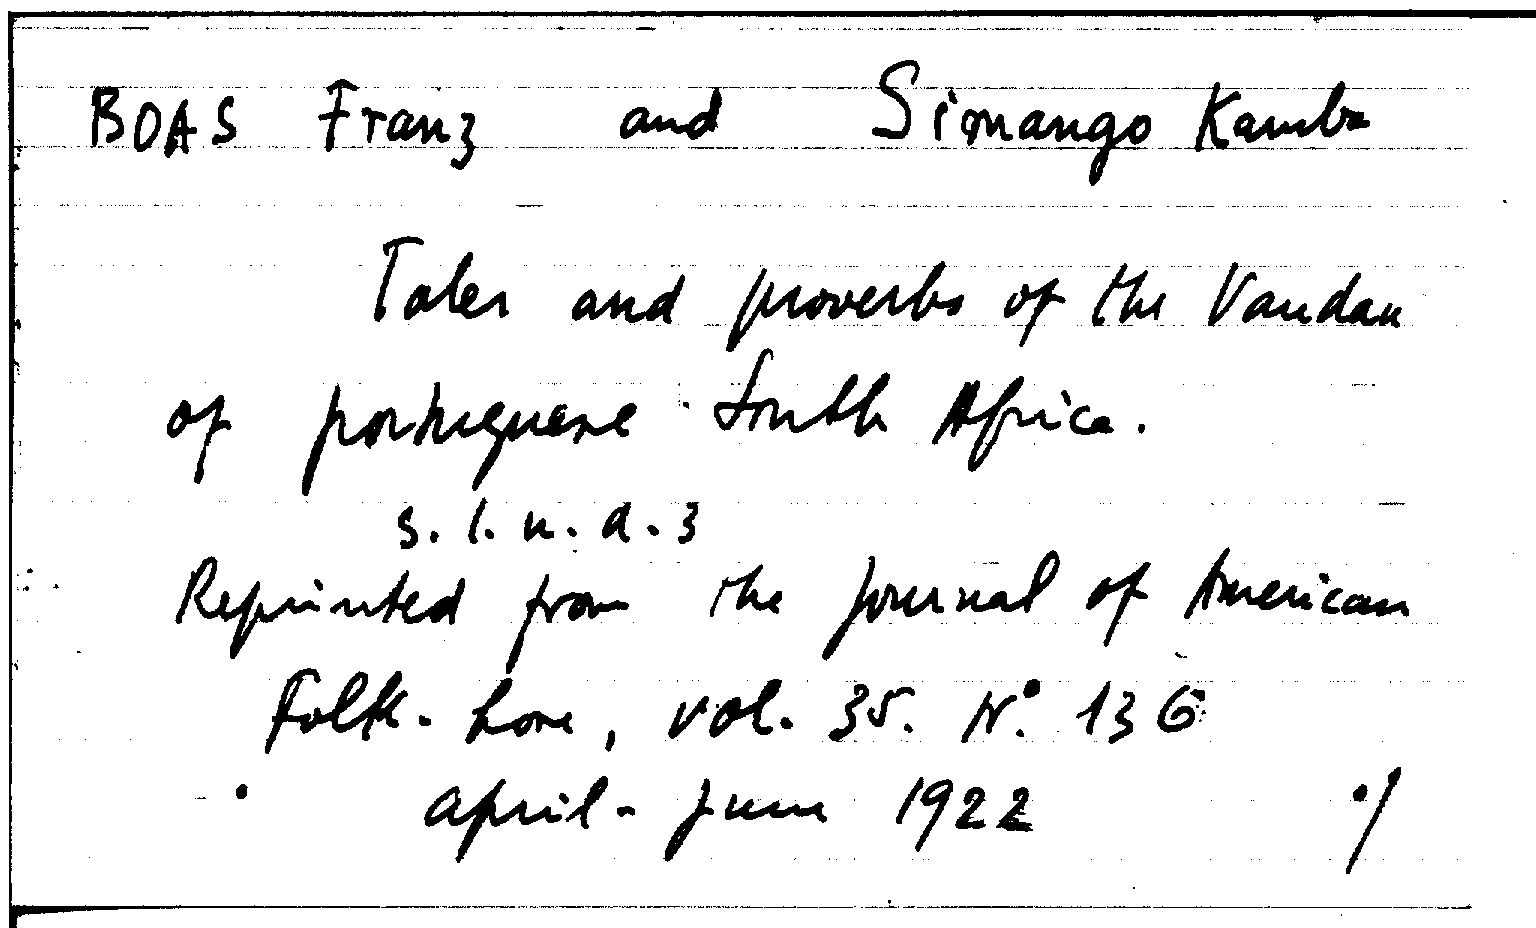 BOAS Franz and Simango Kamba
Tales and proverbs of the Vandau
of portuguese South Africa.
s. l. n. d. 3
Reprinted from the Journal of American
Folk-Lore, vol. 35. N° 136
april-June 1922 ./